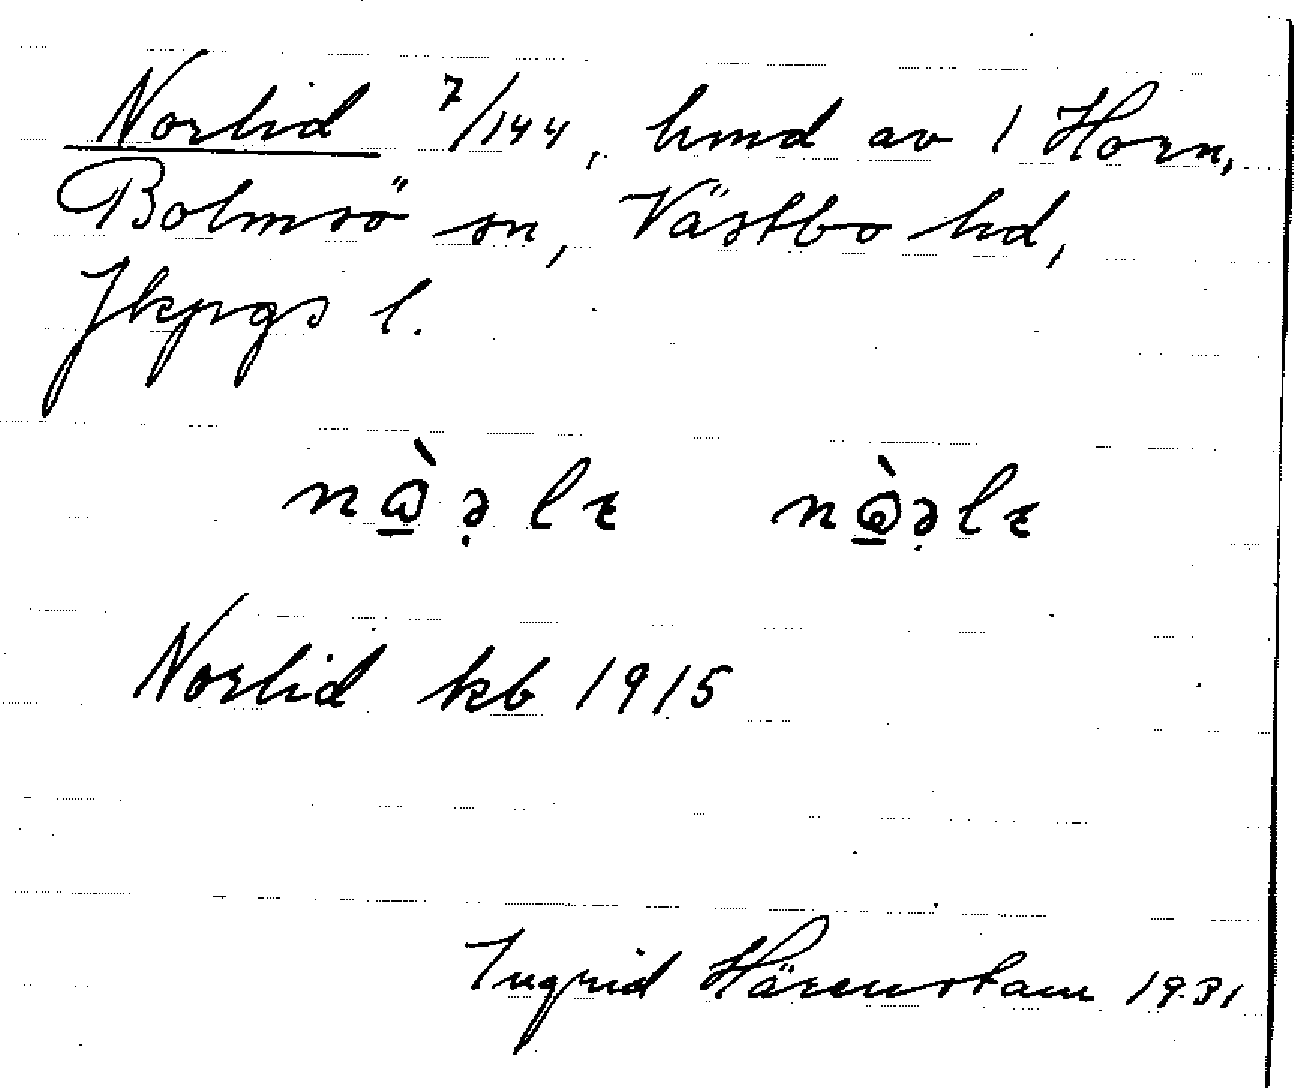 Norlid 7/144, hmd av 1 Horn,
Bolmsö sn, Västbo hd,
Jkpgs l.
Norlid kb 1915
Ingrid Härenstam 1931